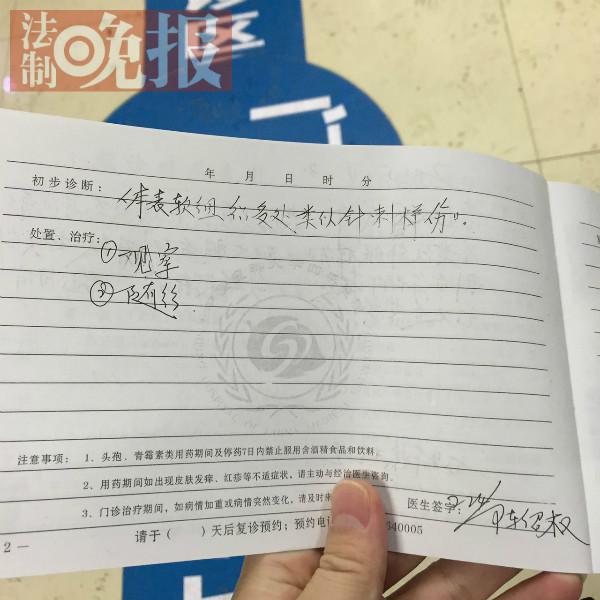 法制
晚报
年 月 日 时 分
初步诊断：体表软组织多处类似针刺样伤。
处置、治疗：
①观察
②随诊
注意事项： 1、头孢、青霉素类用药期间及停药7日内禁止服用含酒精食品和饮料。
2、用药期间如出现皮肤发痒、红疹等不适症状，请主动与经治医生咨询。
3、门诊治疗期间，如病情加重或病情突然变化，请及时来
医生签字：
请于（ ）天后复诊预约；预约电 340005
2 —